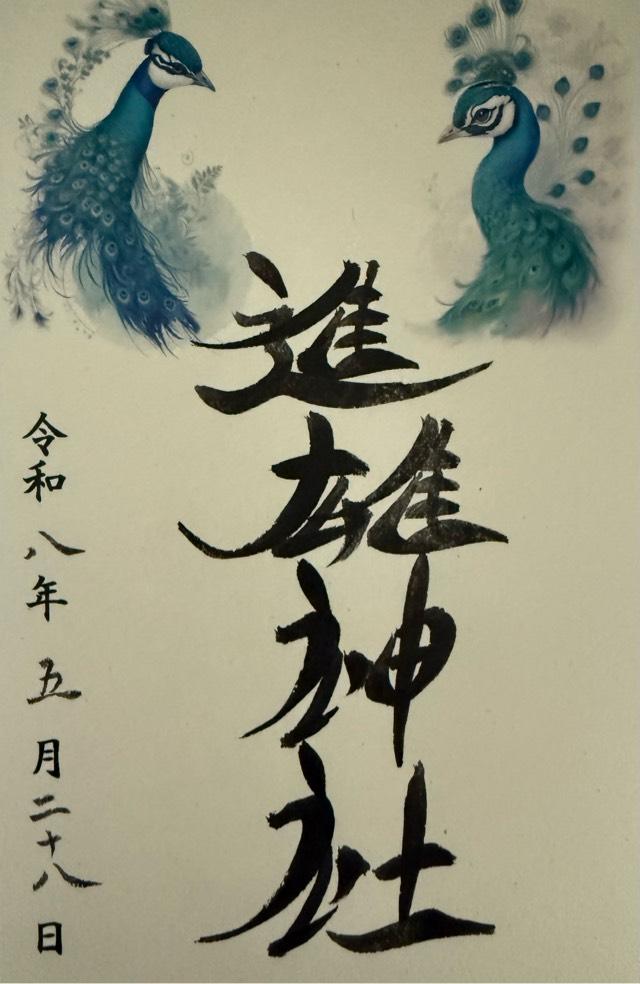 進雄神社
令和八年五月二十八日